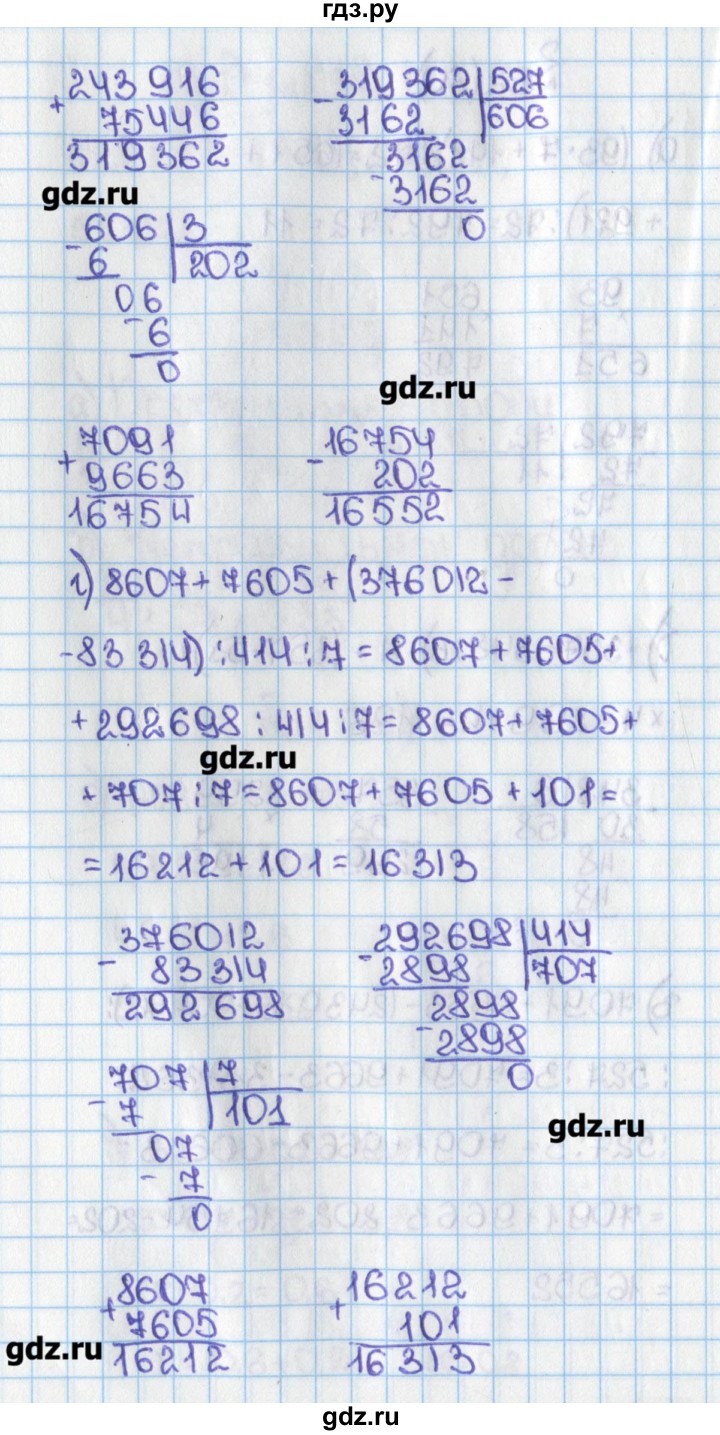 гдз.ру
+ 243 916
75446
319362
- 319362 | 527
3162 | 606
3162
- 3162
0
gdz.ru
- 606 | 3
6 | 202
06
- 6
0
gdz.ru
+ 7091
9663
16754
- 16754
202
16552
г) 8607 + 7605 + (376012 -
- 83 314) : 414 : 7 = 8607 + 7605 +
+ 292698 : 414 : 7 = 8607 + 7605 +
gdz.ru
+ 707 : 7 = 8607 + 7605 + 101 =
= 16212 + 101 = 16313
- 376012
83314
292698
- 292698 | 414
2898 | 707
2898
- 2898
0
- 707 | 7
7 | 101
07
- 7
0
gdz.ru
+ 8607
7605
16212
+ 16212
101
16313
gdz.ru
gdz.ru